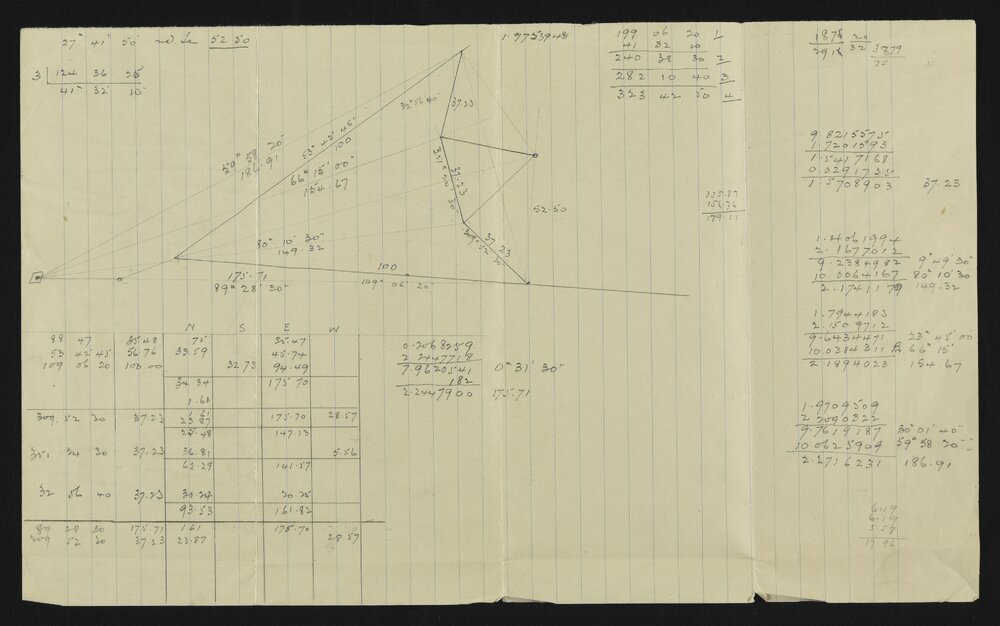 27° 41' 50" rad 52.50
3 | 124 36 25
41 32 10
1.9753948
199 06 20 1
41 32 10
240 38 30 2
282 10 40 3
323 42 50 4
1878 20
2918 32 3879
75
59° 58' 20"
186.91
53° 42' 45"
100
66° 15' 00"
154 67
32° 56' 40"
37.23
37.23
351° 24' 30"
37.23
309° 52' 30"
52.50
80° 10' 30"
149.32
100
109° 06' 20"
175.71
89° 28' 30"
155.87
179.11
9.8215575
1.7201593
1.5417168
1.5708903 37.23
1.4061994
2.1677012
9.2384982 9° 49' 30"
10.0064167 80° 10' 30"
2.1741179 149.32
1.7944183
2.1509712
9.6434471 23° 45' 00"
10.0384311 66° 15'
2.1894023 154.67
1.9709509
2.2090322
9.7619187 30° 01' 40"
10.0625909 59° 58' 20"
2.2716231 186.91
6.19
6.19
5.58
17.96
N S E W
88 47 35.48 .75 35.47
53 42 45 56.76 33.59 45.74
109 06 20 100.00 32.73 94.49
34 34 175.70
1.61
309 52 30 37.23 23.87 175.70 28.57
25.48 147.13
351 24 30 37.23 36.81 5.56
62.29 141.57
32 56 40 37.23 31.24 20.25
93.53 161.82
89 28 30 175.71 1.61 175.70
309 52 30 37.53 23.87 28.57
0.2068259
2.2447718
7.9620541 0° 31' 30"
182
2.2447900 175.71